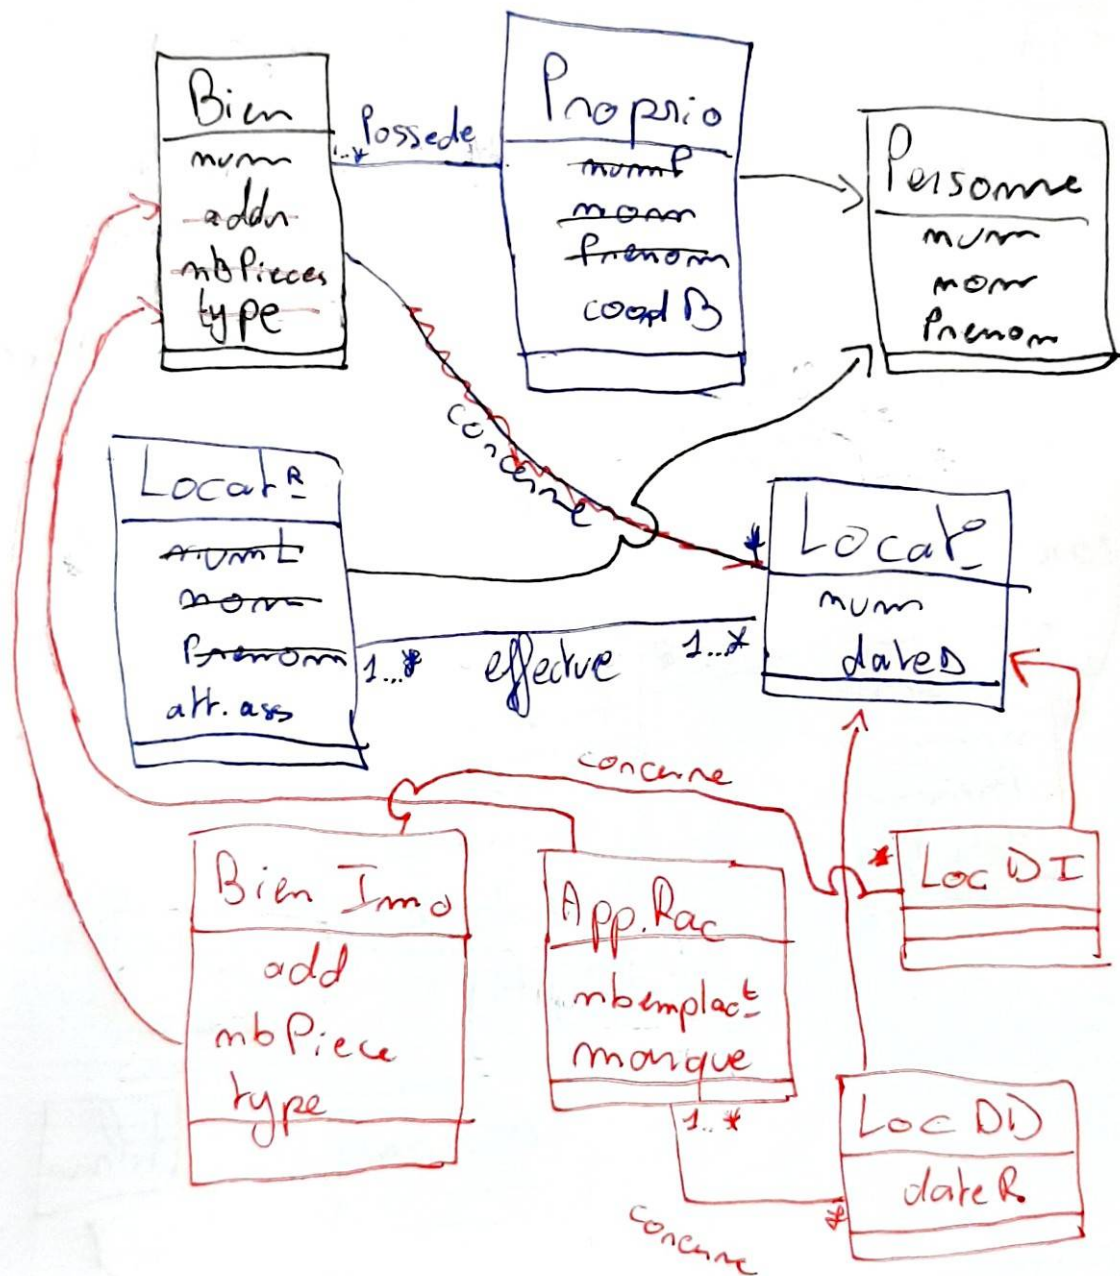 Bien
num
addr
nbPieces
type
1..*
Possede
Proprio
numP
nom
Prenom
coord B
Personne
num
nom
Prenom
concerne
*
Locat R
numL
nom
Prenom
att. ass
1...*
effectue
1...*
Locat°
num
dateD
concerne
*
Loc DI
Bien Immo
add
nb Piece
type
App. Rac
nbemplact
marque
1..*
concerne
*
Loc DD
date R